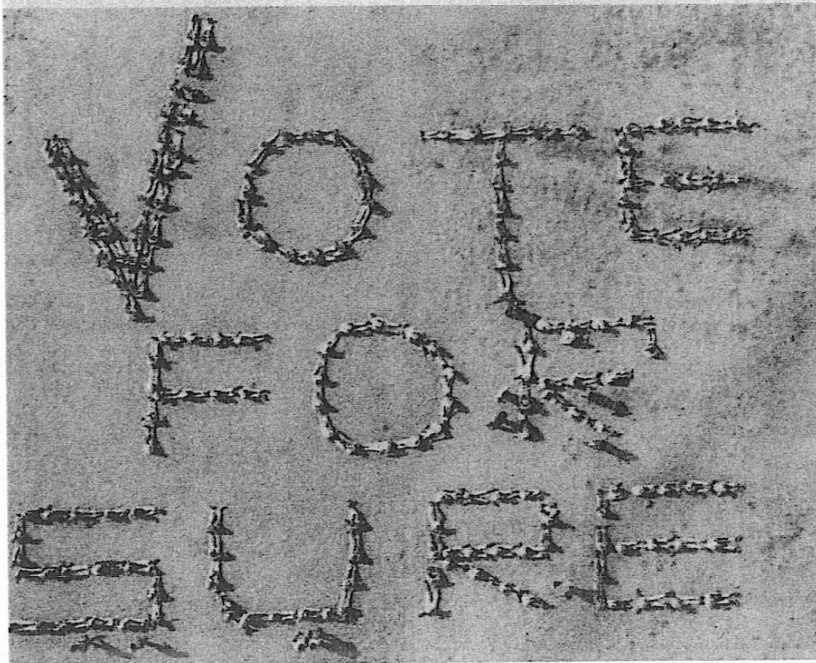 VOTE
FOR
SURE